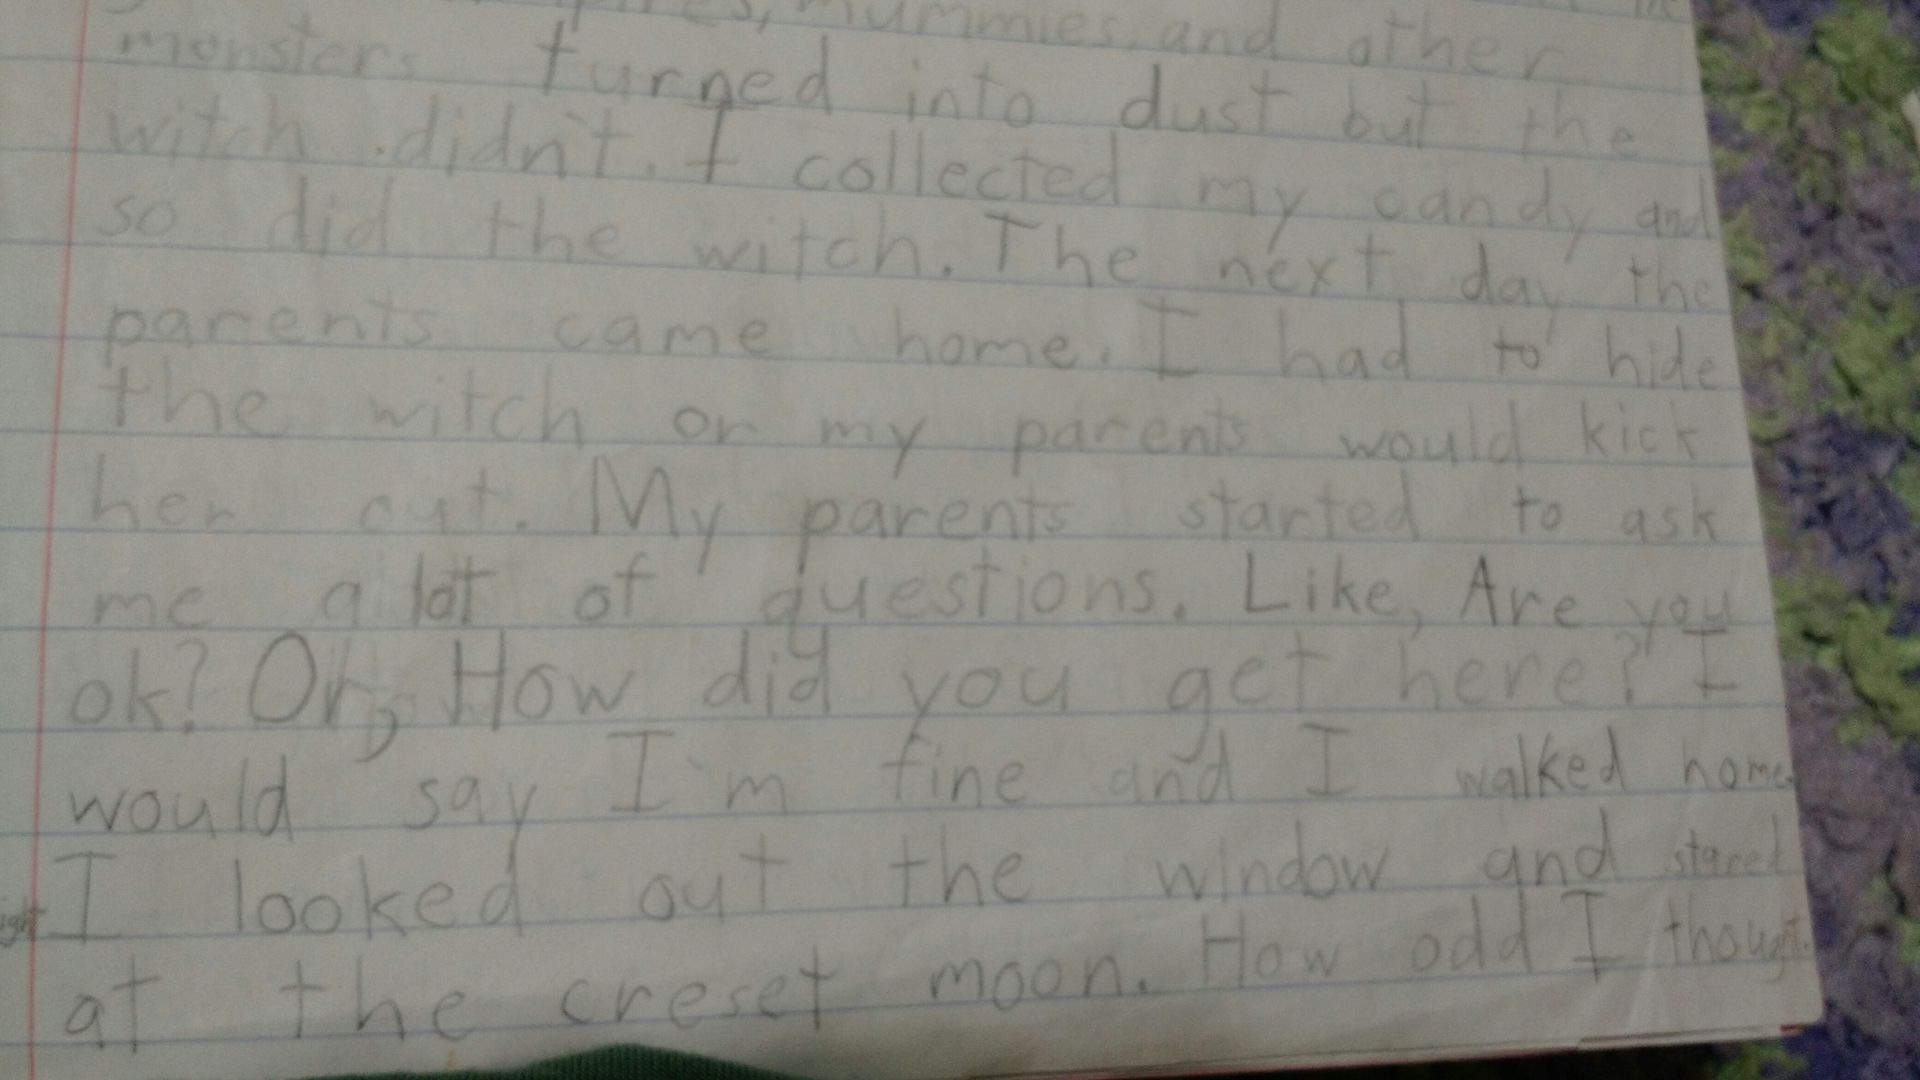 mummies, and other
monsters turned into dust but the
witch didn't. I collected my candy and
so did the witch. The next day the
parents came home. I had to hide
the witch or my parents would kick
her out. My parents started to ask
me a lot of questions. Like, Are you
ok? Or, How did you get here? I
would say I'm fine and I walked home.
I looked out the window and stared
at the creset moon. How odd I thought.